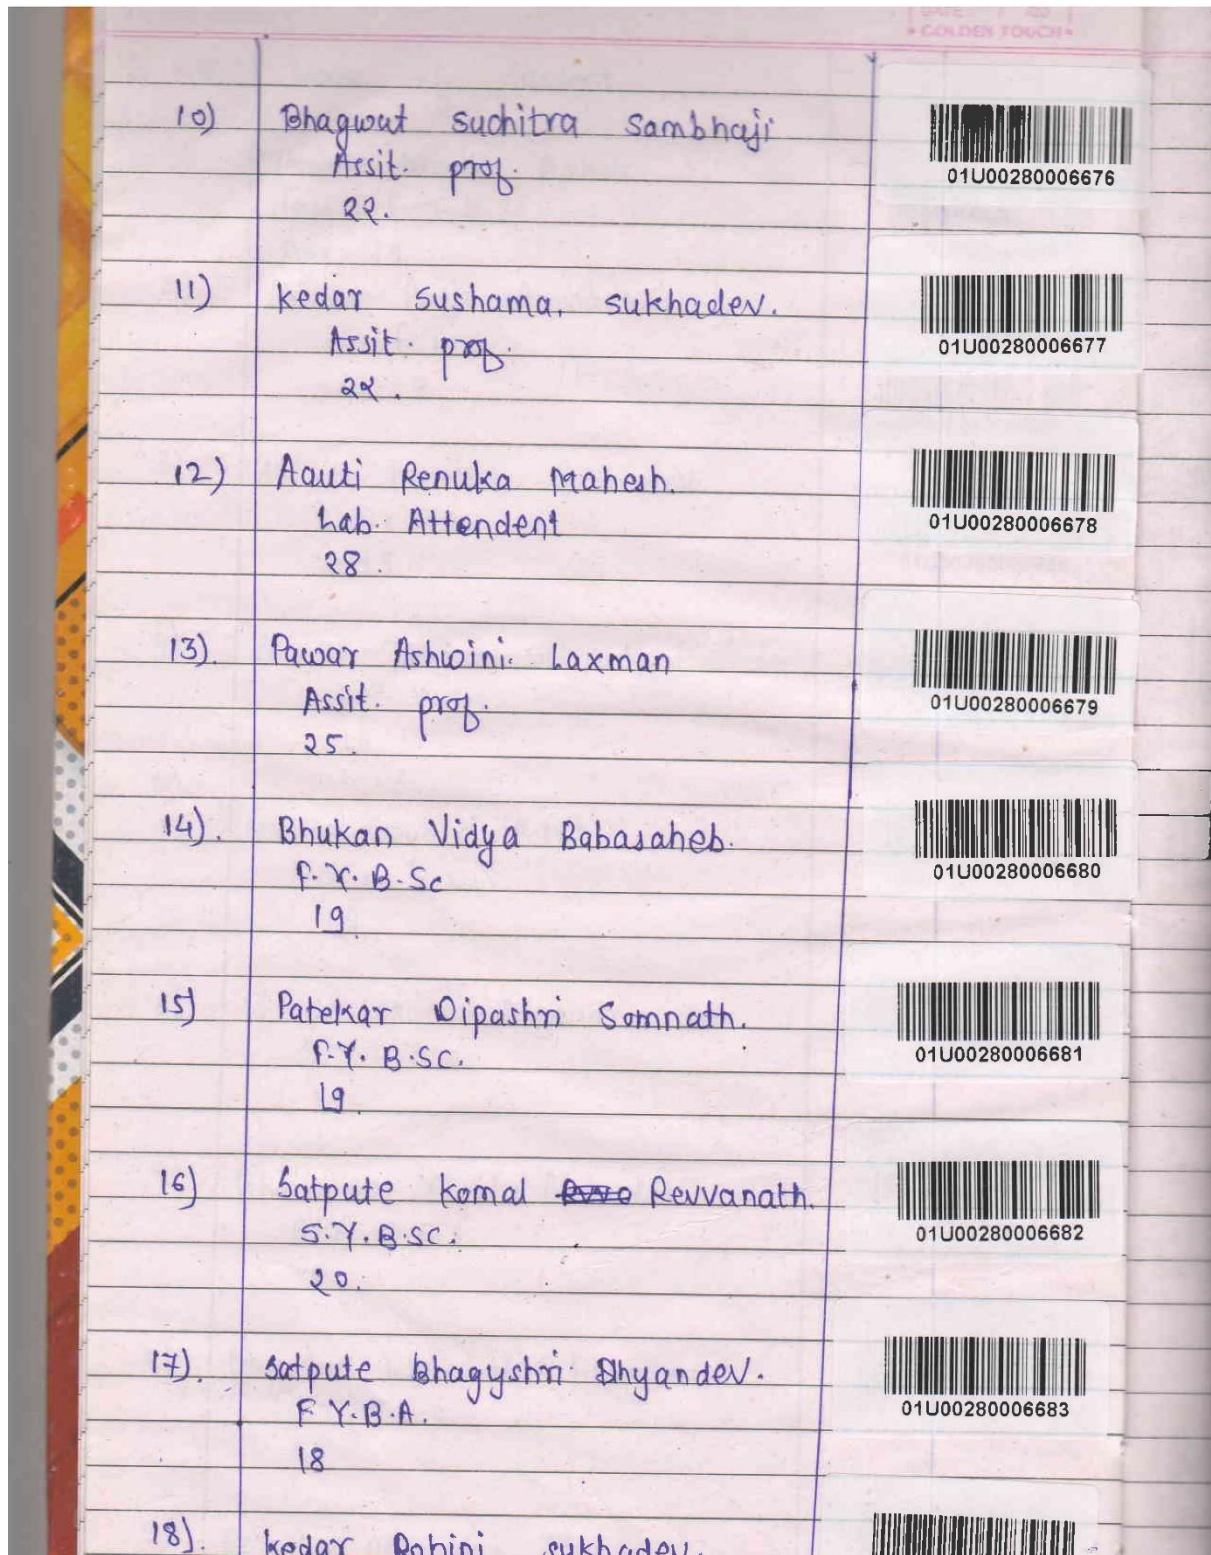 • GOLDEN TOUCH •
10) Bhagwat Suchitra Sambhaji
Assit. prof.
22.
01U00280006676
11) kedar Sushama. Sukhadev.
Assit. prof.
01U00280006677
12) Aauti Renuka Mahesh.
Lab. Attendent
28.
01U00280006678
13). Pawar Ashwini. Laxman
Assit. prof.
25.
01U00280006679
14). Bhukan Vidya Babasaheb.
F.Y.B.Sc
19
01U00280006680
15) Patekar Dipashri Somnath.
F.Y.B.SC.
19
01U00280006681
16) Satpute Komal Revvanath.
S.Y.B.SC.
20.
01U00280006682
17). Satpute Bhagyshri Dhyandev.
F Y.B.A.
18
01U00280006683
18). kedar Rohini sukhadev.